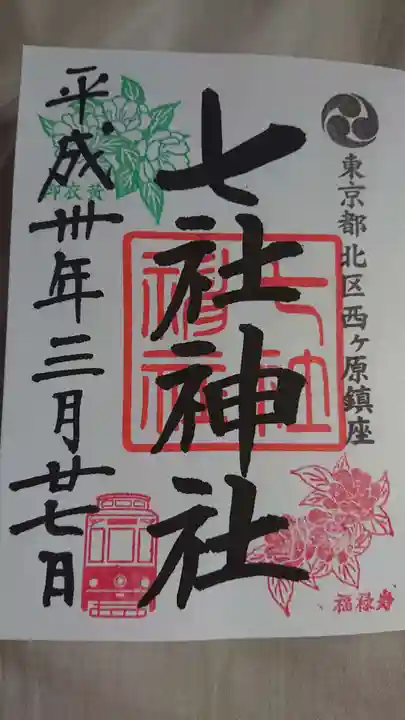 東京都北区西ヶ原鎮座
七社神社
七社神社
平成卅年三月廿七日
御衣黄
福禄寿